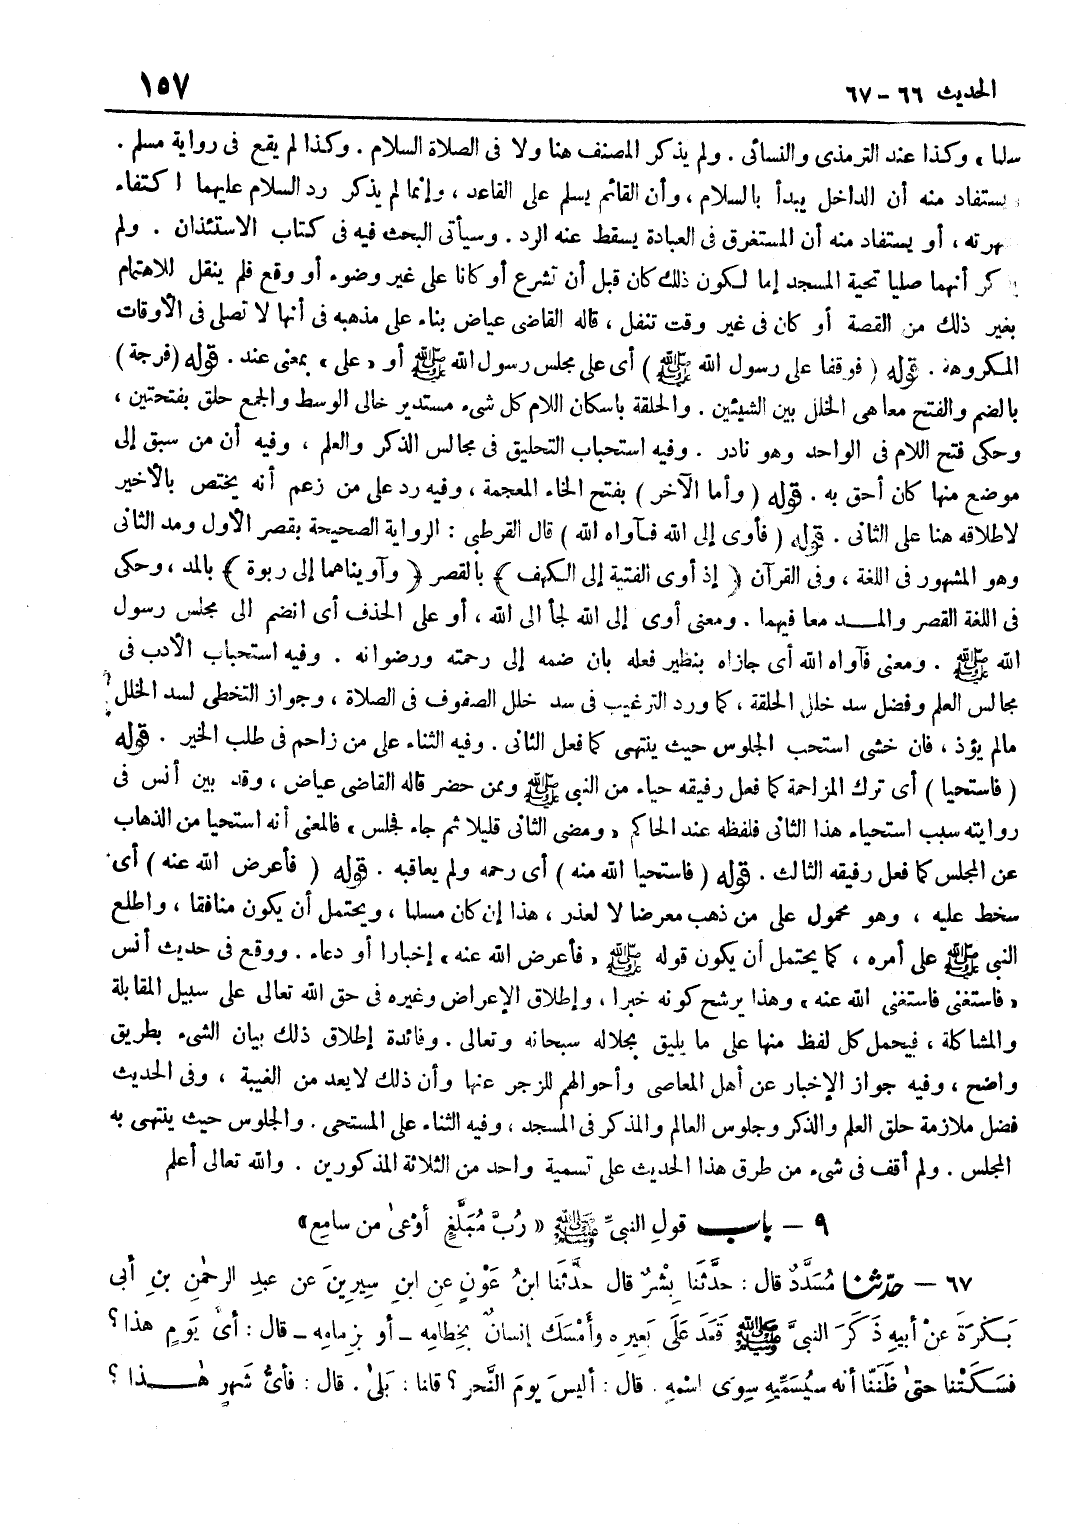 الحديث ٦٦ - ٦٧
١٥٧
سلما » وكذا عند الترمذى والنسائى . ولم يذكر المصنف هنا ولا فى الصلاة السلام . وكذا لم يقع فى رواية مسلم .
يستفاد منه أن الداخل يبدأ بالسلام ، وأن القائم يسلم على القاعد ، وإنما لم يذكر رد السلام عليهما اكتفاء
هرته ، أو يستفاد منه أن المستغرق فى العبادة يسقط عنه الرد . وسيأتى البحث فيه فى كتاب الاستئذان . ولم
كر أنهما صليا تحية المسجد إما لكون ذلك كان قبل أن تشرع أو كانا على غير وضوء أو وقع فلم ينقل للاهتمام
بغير ذلك من القصة أو كان فى غير وقت تنفل ، قاله القاضى عياض بناء على مذهبه فى أنها لا تصلى فى الأوقات
المكروهة . قوله ( فوقفا على رسول الله ﷺ ) أى على مجلس رسول الله ﷺ أو « على » بمعنى عند . قوله (فرجة)
بالضم والفتح معا هى الخلل بين الشيئين . والحلقة باسكان اللام كل شىء مستدير خالى الوسط والجمع حلق بفتحتين ،
وحكى فتح اللام فى الواحد وهو نادر . وفيه استحباب التحليق فى مجالس الذكر والعلم ، وفيه أن من سبق إلى
موضع منها كان أحق به . قوله ( وأما الآخر ) بفتح الخاء المعجمة ، وفيه رد على من زعم أنه يختص بالأخير
لاطلاقه هنا على الثانى . قوله ( فأوى إلى الله فآواه الله ) قال القرطبى : الرواية الصحيحة بقصر الأول ومد الثانى
وهو المشهور فى اللغة ، وفى القرآن ﴿ إذ أوى الفتية إلى الكهف ﴾ بالقصر ﴿ وآويناهما إلى ربوة ﴾ بالمد ، وحكى
فى اللغة القصر والمـــد معا فيهما . ومعنى أوى إلى الله لجأ الى الله ، أو على الحذف أى انضم الى مجلس رسول
الله ﷺ . ومعنى فآواه الله أى جازاه بنظير فعله بان ضمه إلى رحمته ورضوانه . وفيه استحباب الأدب فى
مجالس العلم وفضل سد خلل الحلقة ، كما ورد الترغيب فى سد خلل الصفوف فى الصلاة ، وجواز التخطى لسد الخلل
مالم يؤذ ، فان خشى استحب الجلوس حيث ينتهى كما فعل الثانى . وفيه الثناء على من زاحم فى طلب الخير . قوله
( فاستحيا ) أى ترك المزاحمة كما فعل رفيقه حياء من النبى ﷺ وممن حضر قاله القاضى عياض ، وقد بين أنس فى
روايته سبب استحياء هذا الثانى فلفظه عند الحاكم « ومضى الثانى قليلا ثم جاء فجلس » فالمعنى أنه استحيا من الذهاب
عن المجلس كما فعل رفيقه الثالث . قوله ( فاستحيا الله منه ) أى رحمه ولم يعاقبه . قوله ( فأعرض الله عنه ) أى
سخط عليه ، وهو محمول على من ذهب معرضا لا لعذر ، هذا إن كان مسلما ، ويحتمل أن يكون منافقا ، واطلع
النبى ﷺ على أمره ، كما يحتمل أن يكون قوله ﷺ « فأعرض الله عنه » إخبارا أو دعاء . ووقع فى حديث أنس
« فاستغنى فاستغنى الله عنه » وهذا يرشح كونه خبرا ، وإطلاق الإعراض وغيره فى حق الله تعالى على سبيل المقابلة
والمشاكلة ، فيحمل كل لفظ منها على ما يليق بجلاله سبحانه وتعالى . وفائدة إطلاق ذلك بيان الشىء بطريق
واضح ، وفيه جواز الإخبار عن أهل المعاصى وأحوالهم للزجر عنها وأن ذلك لا يعد من الغيبة ، وفى الحديث
فضل ملازمة حلق العلم والذكر وجلوس العالم والمذكر فى المسجد ، وفيه الثناء على المستحى . والجلوس حيث ينتهى به
المجلس . ولم أقف فى شىء من طرق هذا الحديث على تسمية واحد من الثلاثة المذكورين . والله تعالى أعلم
٩ - باب قولِ النبىِّ ﷺ « رُبَّ مُبَلَّغٍ أوْعىٰ من سامِعٍ»
٦٧ - حدّثنا مُسَدَّدٌ قال : حدَّثَنا بِشْرٌ قال حدَّثَنا ابنُ عَوْنٍ عنِ ابنِ سِيرِينَ عن عبدِ الرحمٰنِ بنِ أبى
بَكْرَةَ عنْ أبيهِ ذَكَرَ النبىَّ ﷺ قَعَدَ عَلَى بَعِيرِهِ وأَمْسَكَ إنسانٌ بخِطامِهِ - أو بزِمامِهِ - قال : أىُّ يَومٍ هذا ؟
فسَكَتْنا حتىٰ ظَنَنَّا أنه سيُسَمِّيهِ سِوَى اسْمِهِ . قال : أليسَ يومَ النَّحرِ ؟ قلنا : بَلىٰ . قال : فأىُّ شَهرٍ هٰــذا ؟